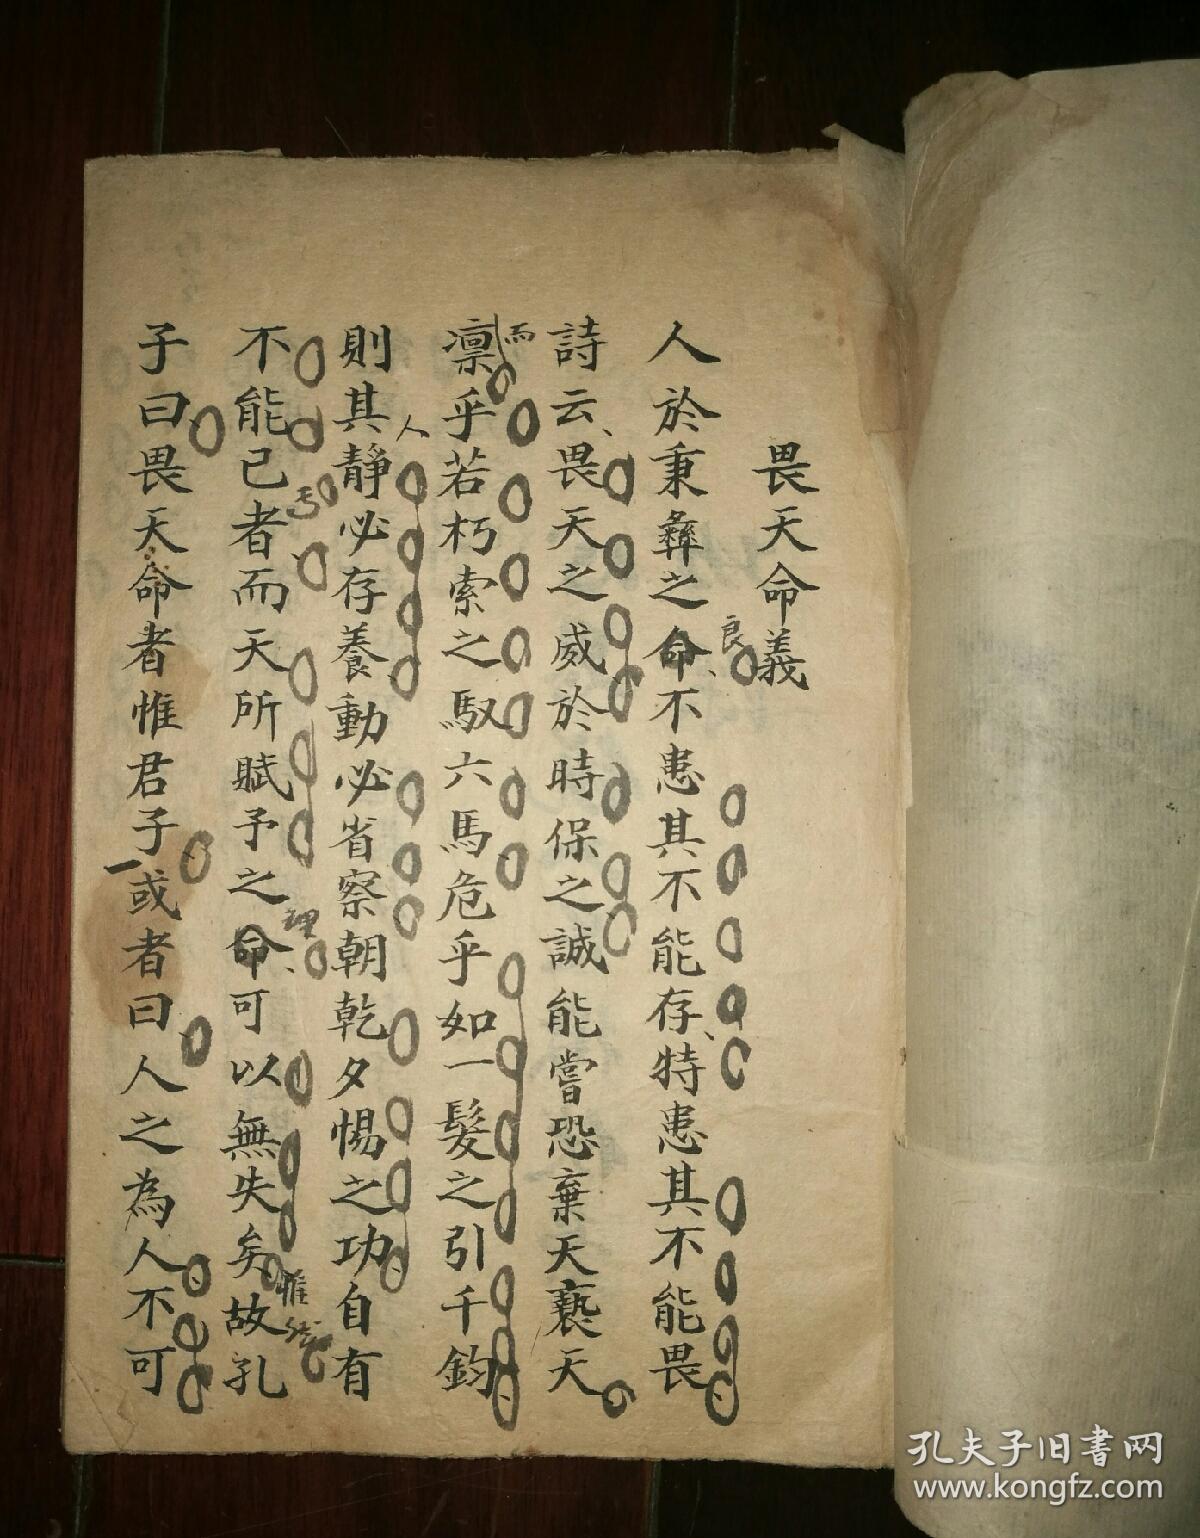 畏天命義
人於秉彝之命不患其不能存特患其不能畏
良
詩云畏天之威於時保之誠能嘗恐棄天褻天
而
凛乎若朽索之馭六馬危乎如一髮之引千鈞
人
則其靜必存養動必省察朝乾夕惕之功自有
不能已者而天所賦予之命可以無失矣故孔
理
惟
子曰畏天命者惟君子或者曰人之為人不可
孔夫子旧書网
www.kongfz.com